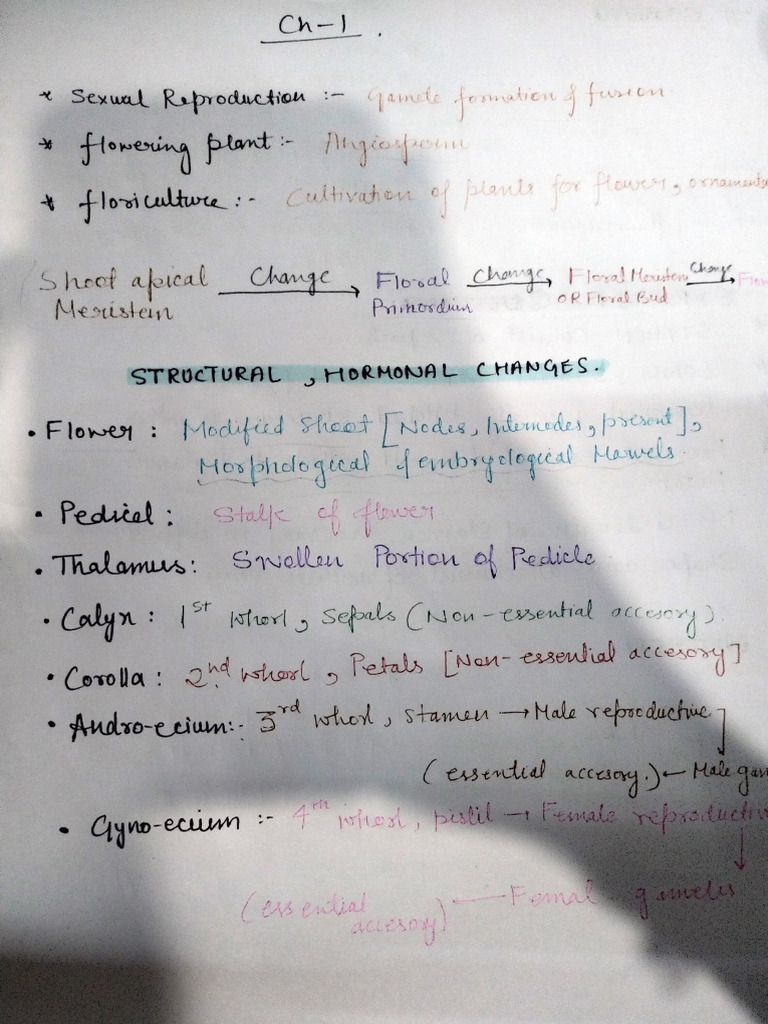 Ch-1.
* Sexual Reproduction :- Gamete formation & fusion
* flowering plant :- Angiosperm
* floriculture :- Cultivation of plants for flower, ornamenta
Shoot apical Change Floral Change Floral Meristem Change Flow
Meristem Primordium OR Floral Bud
STRUCTURAL, HORMONAL CHANGES.
• Flower : Modified Shoot [Nodes, Internodes, present],
Morphological & embryological Marvels.
• Pedicel : Stalk of flower
• Thalamus : Swollen Portion of Pedicle.
• Calyx : 1st Whorl, Sepals (Non-essential accesory).
• Corolla : 2nd whorl, Petals [Non-essential accesory]
• Andro-ecium :- 3rd whorl, Stamen → Male reproductive
(essential accesory.) ← Male gam
• Gyno-ecium :- 4th whorl, pistil → Female reproductiv
(essential ← Femal gametes
accesory)